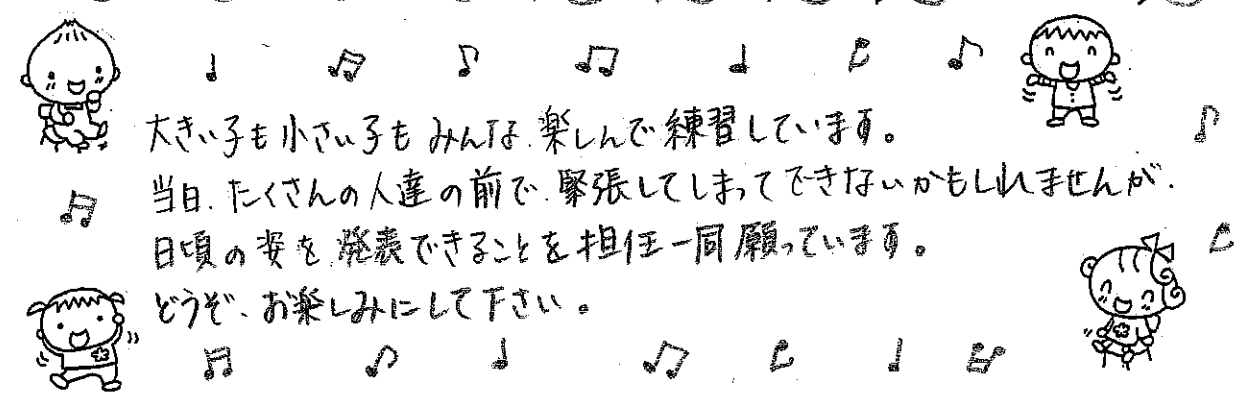 大きい子も小さい子もみんな、楽しんで練習しています。
当日、たくさんの人達の前で、緊張してしまってできないかもしれませんが、
日頃の姿を発表できることを担任一同願っています。
どうぞ、お楽しみにして下さい。